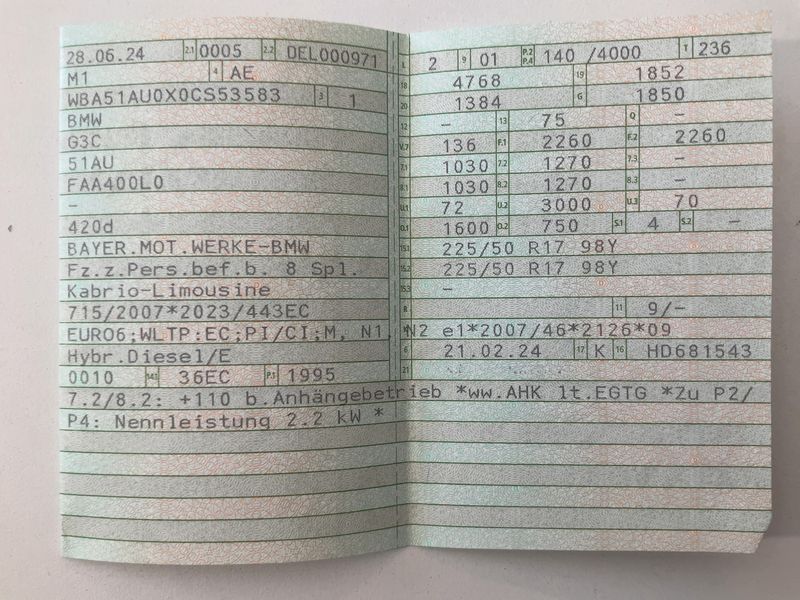 28.06.24 2.1 0005 2.2 DEL000971
M1 4 AE
WBA51AU0X0CS53583 3 1
BMW
G3C
51AU
FAA400L0
–
420d
BAYER.MOT.WERKE-BMW
Fz.z.Pers.bef.b. 8 Spl.
Kabrio-Limousine
715/2007*2023/443EC
EURO6;WLTP:EC;PI/CI;M, N1, N2
Hybr.Diesel/E
0010 14.1 36EC P.1 1995
7.2/8.2: +110 b.Anhängebetrieb *ww.AHK lt.EGTG *Zu P2/
P4: Nennleistung 2.2 kW *
L 2 9 01 P.2 P.4 140 /4000 T 236
18 4768 19 1852
20 1384 G 1850
12 – 13 75 Q –
V.7 136 F.1 2260 F.2 2260
7.1 1030 7.2 1270 7.3 –
8.1 1030 8.2 1270 8.3 –
U.1 72 U.2 3000 U.3 70
O.1 1600 O.2 750 S.1 4 S.2 –
15.1 225/50 R17 98Y
15.2 225/50 R17 98Y
15.3 –
R 11 9/–
K e1*2007/46*2126*09
6 21.02.24 17 K 16 HD681543
21